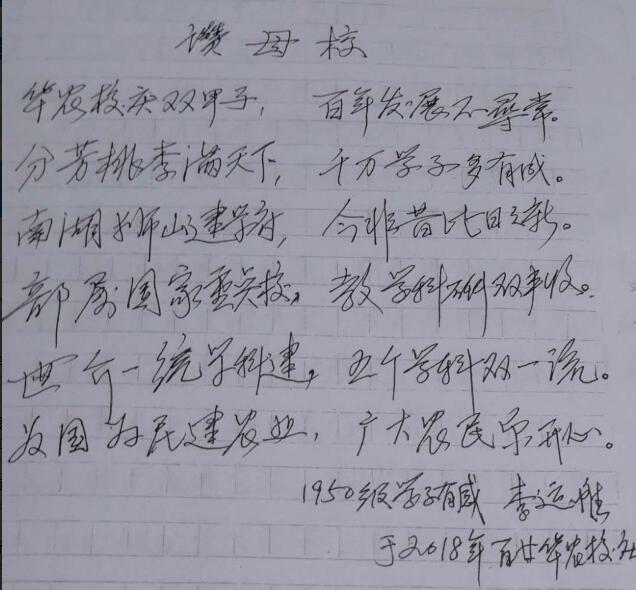 讚母校
华农校庆双甲子， 百年发展不寻常。
分芳桃李满天下， 千万学子多有成。
南湖狮山建学府， 今非昔比日日新。
部属国家重点校， 教学科研双丰收。
世界一流学科建， 五个学科双一流。
为国为民建农业， 广大农民乐开心。
1950级学子有感 李运
于2018年百廿华农校庆